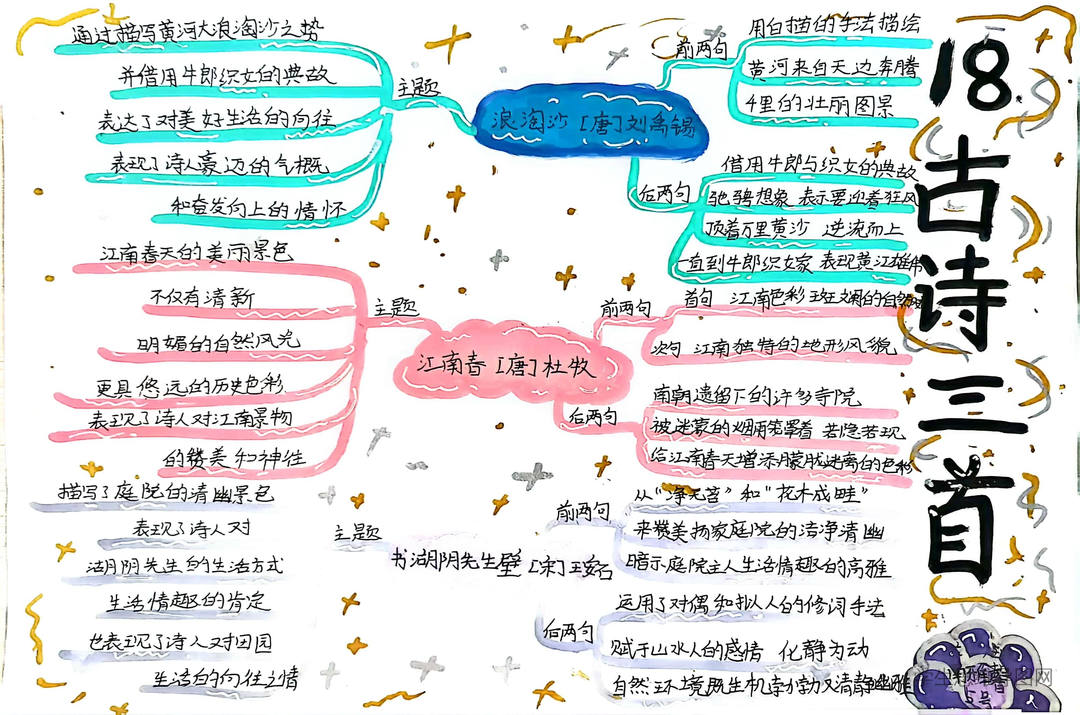 18 古诗三首
浪淘沙 [唐]刘禹锡
主题
通过描写黄河大浪淘沙之势
并借用牛郎织女的典故
表达了对美好生活的向往
表现了诗人豪迈的气概
和奋发向上的情怀
前两句
用白描的手法描绘
黄河来自天边奔腾
4里的壮丽图景
后两句
借用牛郎与织女的典故
驰骋想象 表示要迎着狂风
顶着万里黄沙 逆流而上
一直到牛郎织女家 表现黄江雄伟
江南春 [唐]杜牧
主题
江南春天的美丽景色
不仅有清新
明媚的自然风光
更具悠远的历史色彩
表现了诗人对江南景物
的赞美和神往
前两句
首句 江南色彩斑斓的自然
次句 江南独特的地形风貌
后两句
南朝遗留下的许多寺院
被迷蒙的烟雨笼罩着 若隐若现
给江南春天增添朦胧迷离的色彩
书湖阴先生壁 [宋]王安石
主题
描写了庭院的清幽景色
表现了诗人对
湖阴先生的生活方式
生活情趣的肯定
也表现了诗人对田园
生活的向往之情
前两句
从“净无苔”和“花木成畦”
来赞美扬家庭院的洁净清幽
暗示庭院主人生活情趣的高雅
后两句
运用了对偶和拟人的修词手法
赋于山水人的感情 化静为动
自然环境既生机勃勃又清静幽雅